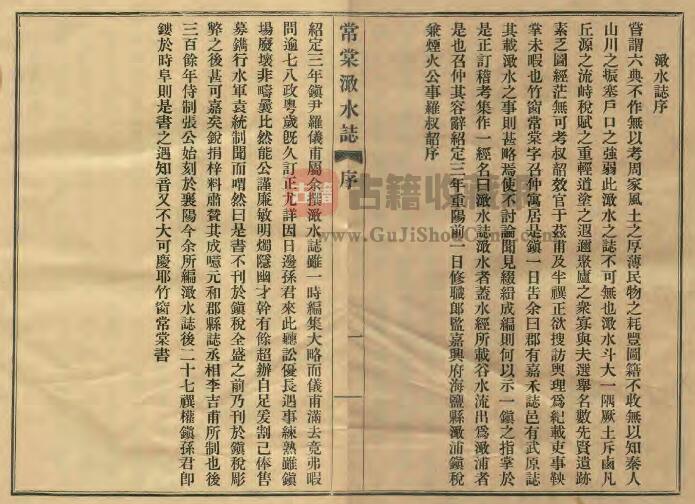 澉水誌序
嘗謂六典不作無以考周家風土之厚薄民物之耗豐圖籍不收無以知秦人
山川之振塞戶口之強弱此澉水之誌不可無也澉水斗大一隅厥土斥鹵凡
丘源之流峙稅賦之重輕道塗之遐邇聚廬之衆寡與夫選舉名數先賢遺跡
素乏圖經茫無可考叔韶效官于茲甫及半禩正欲搜訪輿理爲紀載吏事鞅
掌未暇也竹窗常棠字召仲寓居是鎮一日告余曰郡有嘉禾誌邑有武原誌
其載澉水之事則甚略焉使不討論聞見綴紛成編則何以示一鎮之指掌於
是正訂稽考集作一經名曰澉水誌澉水者蓋水經所載谷水流出爲澉浦者
是也召仲其容辭紹定三年重陽前一日修職郎監嘉興府海鹽縣澉浦鎮稅
兼煙火公事羅叔韶序
常棠澉水誌 序
一
紹定三年鎮尹羅儀甫屬余撰澉水誌雖一時編集大略而儀甫滿去竟弗暇
問逾七八政粵歲旣久訂正尤詳因日邊孫君來此聽訟優長遇事練熟雖鎮
場廢壞非疇曩比然能公謹廉敏明燭隱幽才幹有餘超辦自足爰割己俸售
募鐫行水軍袁統制聞而喟然曰是書不刊於鎮稅全盛之前乃刊於鎮稅彫
弊之後甚可嘉矣銳捐梓料肅贊其成噫元和郡縣誌丞相李吉甫所制也後
三百餘年待制張公始刻於襄陽今余所編澉水誌後二十七禩權鎮孫君卽
鏤於時阜則是書之遇知音又不大可慶耶竹窗常棠書
古籍收藏網
www.GuJiShouCang.com